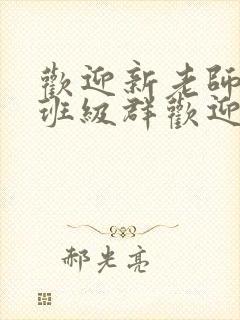 歡迎新老師
班級群歡迎
郝光亮